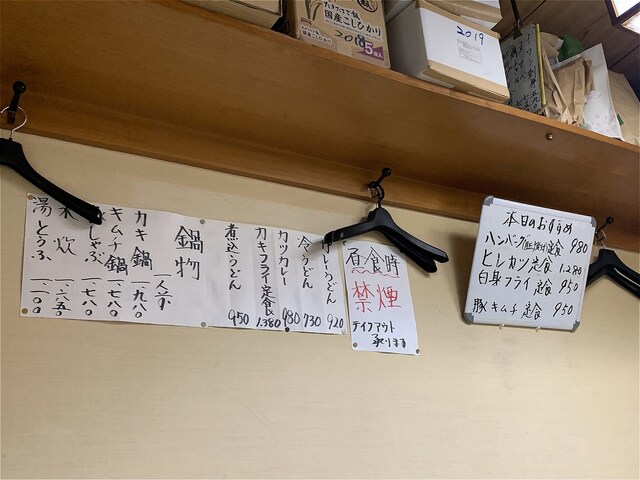 国産こしひかり
2019
鍋物
一人前
カキ鍋 一、九八〇
キムチ鍋 一、七八〇
しゃぶ 一、七八〇
炊
湯とうふ 一、一〇〇
レーうどん 920
冷うどん 730
カツカレー 980
カキフライ定食 1.380
煮込うどん 950
昼食時
禁煙
テイクアウト
承ります
本日のおすすめ
ハンバーグ 定食 980
ヒレカツ定食 1.280
白身フライ定食 950
豚キムチ定食 950